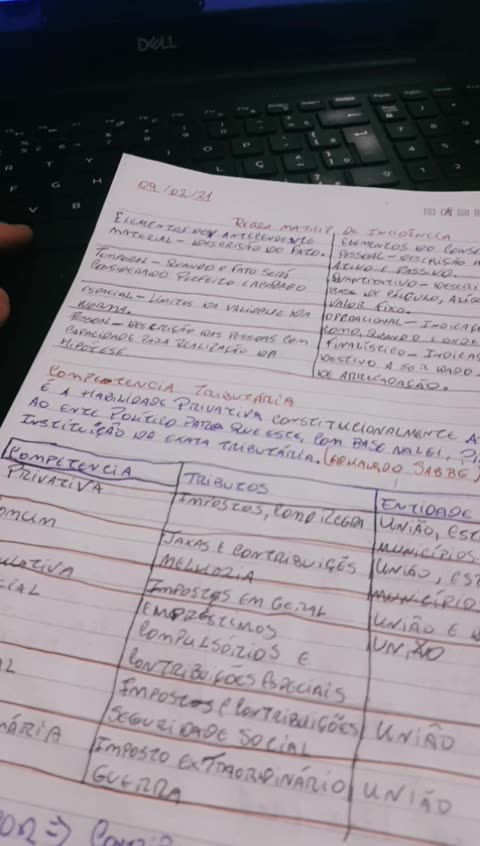 DELL
09/02/21
REGRA MATRIZ DE INCIDÊNCIA
ELEMENTOS DO ANTECEDENTE
MATERIAL - DESCRIÇÃO DO FATO.
TEMPORAL - QUANDO O FATO SERÁ
CONSIDERADO PERFEITO E ACABADO
ESPACIAL - LIMITES DA VALIDADE DA
NORMA.
PESSOAL - DESCRIÇÃO DAS PESSOAS COM
CAPACIDADE PARA REALIZAÇÃO DA
HIPÓTESE
ELEMENTOS DO CONSE
PESSOAL - DESCRIÇÃO
ATIVO E PASSIVO.
QUANTITATIVO - DESCRI
BASE DE CÁLCULO, ALÍQ
VALOR FIXO.
OPERACIONAL - INDICAÇ
COMO, QUANDO E ONDE
FINALÍSTICO - INDICAÇ
DESTIVO A SER DADO
DE ARRECADAÇÃO.
COMPETENCIA TRIBUTÁRIA
É A HABILIDADE PRIVATIVA CONSTITUCIONALMENTE A
AO ENTE POLÍTICO PARA QUE ESTE, COM BASE NA LEI, P
INSTITUIÇÃO DA EXATA TRIBUTÁRIA. (EDUARDO SABBE)
COMPETENCIA TRIBUTOS ENTIDADE
PRIVATIVA IMPOSTOS, COMO REGRA UNIÃO, EST
MUNICÍPIOS
OMUM TAXAS E CONTRIBUIÇÕES UNIÃO, EST
MELHORIA MUNICÍPIO
ULATIVA IMPOSTOS EM GERAL UNIÃO E
CIAL EMPRÉSTIMOS UNIÃO
COMPULSÓRIOS E
CONTRIBUIÇÕES ESPECIAIS
AL IMPOSTOS E CONTRIBUIÇÕES UNIÃO
SEGURIDADE SOCIAL
NÁRIA IMPOSTO EXTRAORDINÁRIO UNIÃO
GUERRA